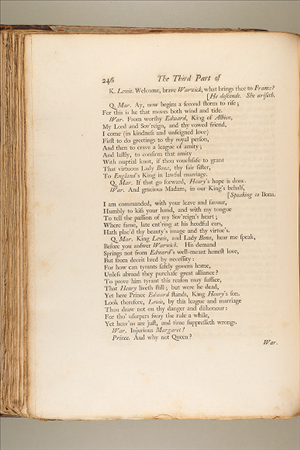 246 The Third Part of
K. Lewis. Welcome, brave Warwick, what brings thee to France?
[He descends. She ariseth.
Q. Mar. Ay, now begins a second storm to rise;
For this is he that moves both wind and tide.
War. From worthy Edward, King of Albion,
My Lord and Sov'reign, and thy vowed friend,
I come (in kindness and unfeigned love)
First to do greetings to thy royal person,
And then to crave a league of amity;
And lastly, to confirm that amity
With nuptial knot, if thou vouchsafe to grant
That virtuous Lady Bona, thy fair sister,
To England's King in lawful marriage.
Q. Mar. If that go forward, Henry's hope is done.
War. And gracious Madam, in our King's behalf,
[Speaking to Bona.
I am commanded, with your leave and favour,
Humbly to kiss your hand, and with my tongue
To tell the passion of my Sov'reign's heart;
Where fame, late ent'ring at his heedful ears,
Hath plac'd thy beauty's image and thy virtue's.
Q. Mar. King Lewis, and Lady Bona, hear me speak,
Before you answer Warwick. His demand
Springs not from Edward's well-meant honest love,
But from deceit bred by necessity:
For how can tyrants safely govern home,
Unless abroad they purchase great alliance?
To prove him tyrant this reason may suffice,
That Henry liveth still; but were he dead,
Yet here Prince Edward stands, King Henry's son.
Look therefore, Lewis, by this league and marriage
Thou draw not on thy danger and dishonour:
For tho' usurpers sway the rule a while,
Yet heav'ns are just, and time suppresseth wrongs.
War. Injurious Margaret!
Prince. And why not Queen?
War.